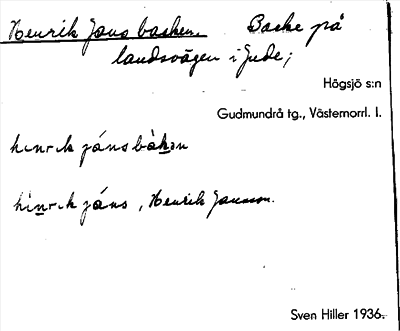 Henrik Jans backen. Backe på
landsvägen i Jude;
Högsjö s:n
Gudmundrå tg., Västernorrl. l.
hinrik jáns bàkən
hínrik jáns, Henrik Jansson.
Sven Hiller 1936.